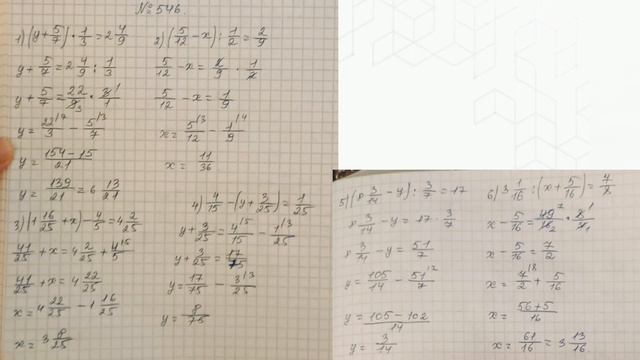 №546.
1) (y + 5/7) · 1/3 = 2 4/9
y + 5/7 = 2 4/9 : 1/3
y + 5/7 = 22/9₃ · 3¹/1
y = 22/3 ⁷ - 5/7 ³
y = 154 - 15/21
y = 139/21 = 6 13/21
2) (5/12 - x) : 1/2 = 2/9
5/12 - x = 2/9 · 1/2
5/12 - x = 1/9
x = 5/12 ³ - 1/9 ⁴
x = 11/36
3) (1 16/25 + x) - 4/5 = 4 2/25
41/25 + x = 4 2/25 + 4/5 ⁵
41/25 + x = 4 22/25
x = 4 22/25 - 1 16/25
x = 3 8/25
4) 4/15 - (y + 3/25) = 1/25
y + 3/25 = 4/15 ⁵ - 1/25 ³
y + 3/25 = 17/75
y = 17/75 - 3/25 ³
y = 8/75
5) ( 3/14 - y) : 3/7 = 17
3/14 - y = 17 · 3/7
3/14 - y = 51/7
y = 105/14 - 51/7 ²
y = 105 - 102/14
y = 3/14
6) 3 1/16 : (x + 5/16) = 7/8
x - 5/16 = 49⁷/16₂ · 8¹/7₁
x - 5/16 = 7/2
x = 7/2 ⁸ + 5/16
x = 56 + 5/16
x = 61/16 = 3 13/16